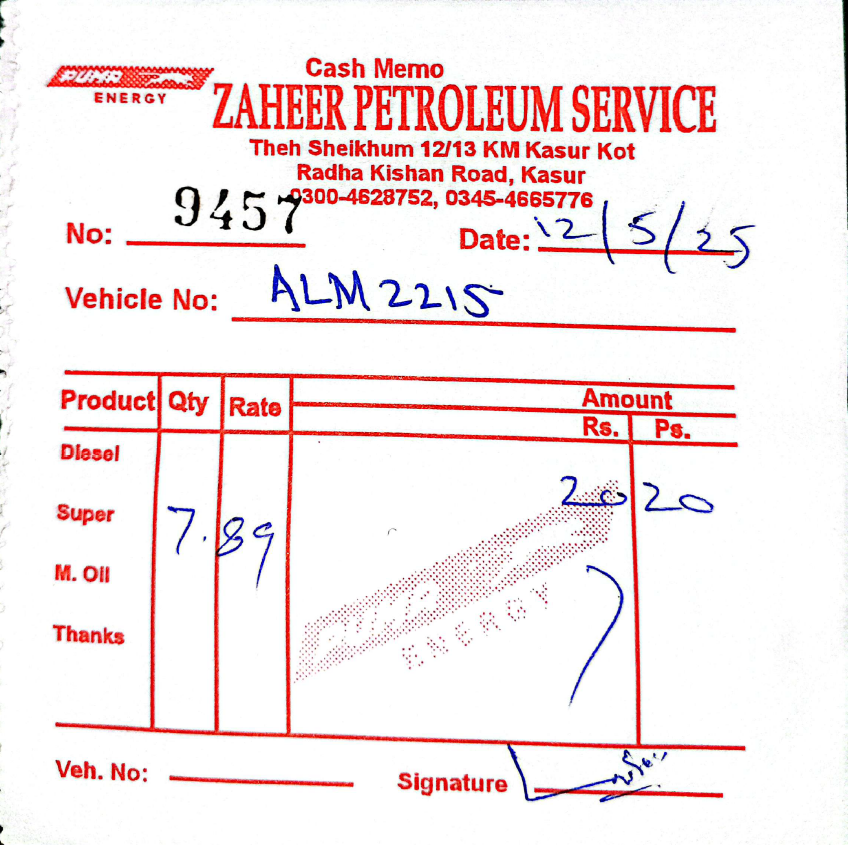 PUMA
ENERGY
Cash Memo
ZAHEER PETROLEUM SERVICE
Theh Sheikhum 12/13 KM Kasur Kot
Radha Kishan Road, Kasur
0300-4628752, 0345-4665776
No: 9457 Date: 12/5/25
Vehicle No: ALM 2215
Product Qty Rate Amount
Rs. Ps.
Diesel
Super 7.89 2020
M. Oil
PUMA
ENERGY
Thanks
Veh. No: Signature